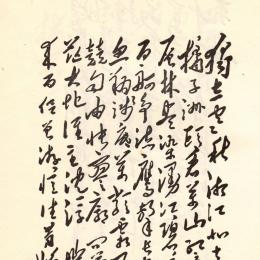 獨立寒秋湘江北去
橘子洲頭看萬山紅
层林尽染漫江碧透
百舸争流鹰击长
魚翔浅底萬類霜天
競自由怅寥廓问
茫大地谁主沉浮
来百侣曾游忆往昔